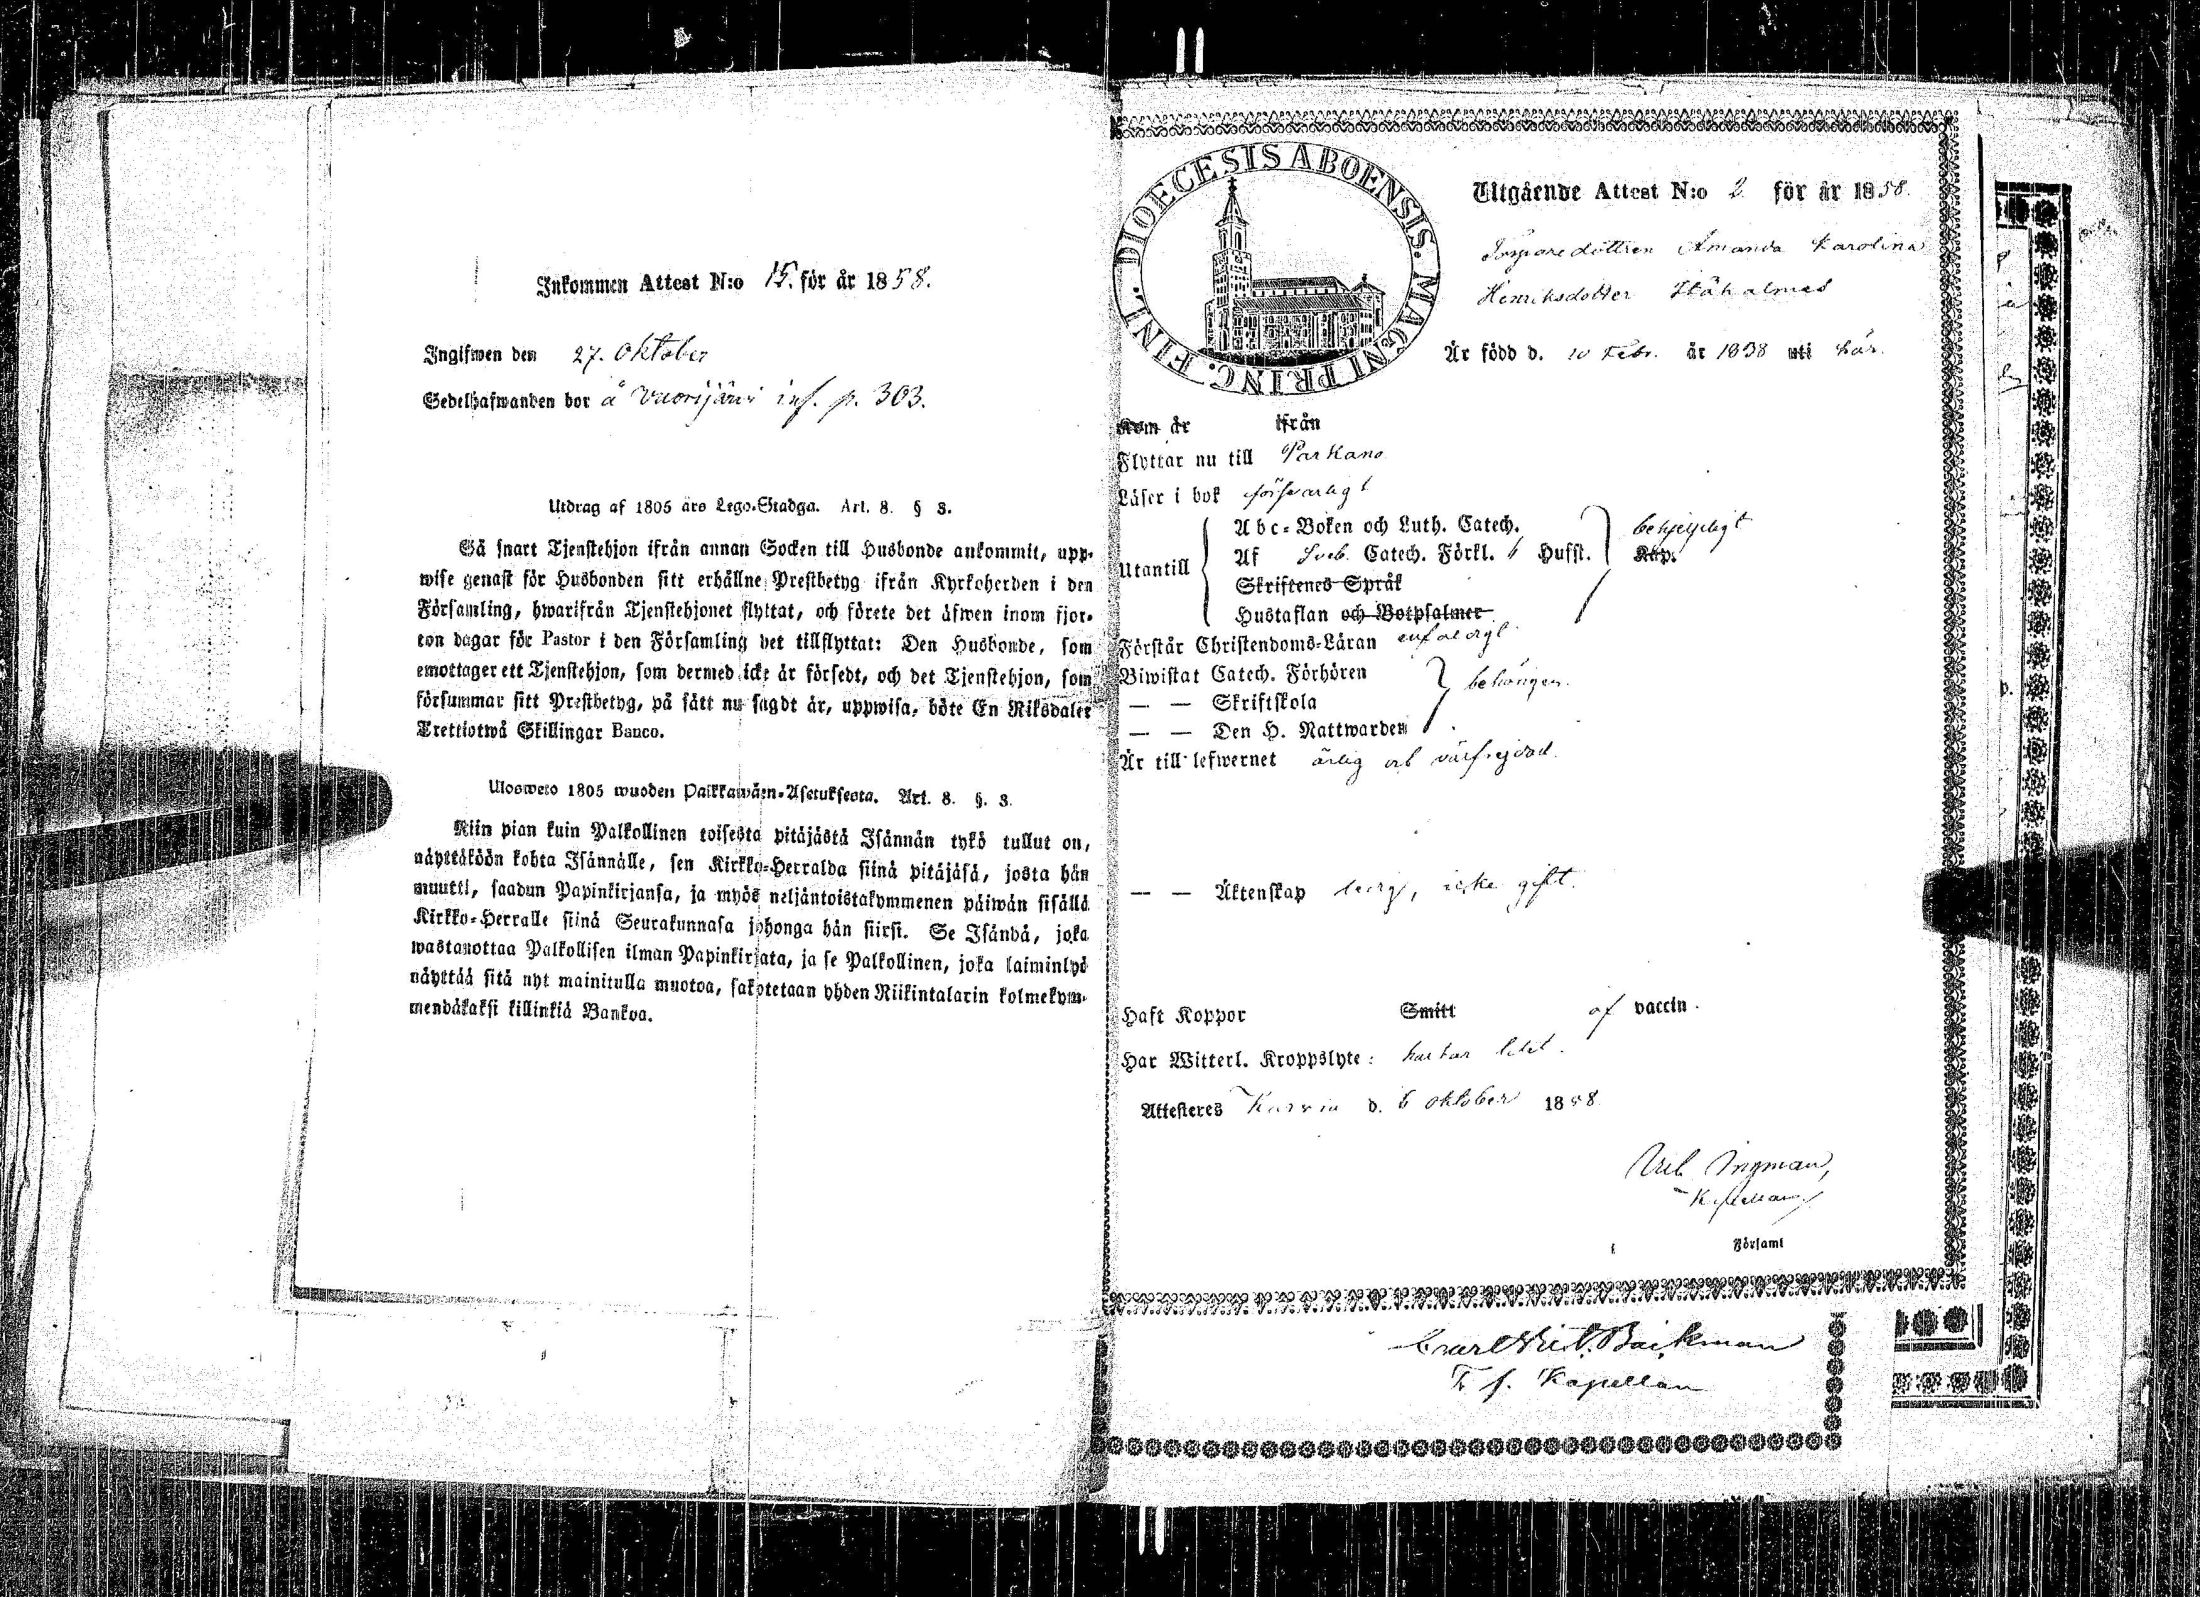 Inkommen Attest N:o 15. för år 1858.
Ingifwen den 27. Oktober
Sedelhafwanden bor å Vuorijärvi inf. p. 303.
Utdrag af 1805 års Lego-Stadga. Art. 8. § 3.
Så snart Tjenstehjon ifrån annan Socken till Husbonde ankommit, upp-
wise genast för Husbonden sitt erhållne Prestbetyg ifrån Kyrkoherden i den
Församling, hwarifrån Tjenstehjonet flyttat, och förete det äfwen inom fjor-
ton dagar för Pastor i den Församling det tillflyttat: Den Husbonde, som
emottager ett Tjenstehjon, som dermed icke är försedt, och det Tjenstehjon, som
försummar sitt Prestbetyg, på sätt nu sagdt är, uppwisa, böte En Riksdaler
Trettiotwå Skillingar Banco.
Ulosweto 1805 wuoden Palkkawäen-Asetuksesta. Art. 8. §. 3.
Niin pian kuin Palkollinen toisesta pitäjästä Isännän tykö tullut on,
näyttäköön kohta Isännälle, sen Kirkko-Herralda siinä pitäjäsä, josta hän
muutti, saadun Papinkirjansa, ja myös neljäntoistakymmenen päiwän sisällä
Kirkko-Herralle siinä Seurakunnasa johonga hän siirsi. Se Isändä, joka
wastanottaa Palkollisen ilman Papinkirjata, ja se Palkollinen, joka laiminlyö
näyttää sitä nyt mainitulla muotoa, sakotetaan yhden Riikintalarin kolmekym-
mendäkaksi killinkiä Bankoa.
DIOECESIS ABOENSIS. MAGNI PRINC. FINL.
Utgående Attest N:o 2 för år 1858.
Torparedottren Amanda Karolina
Henriksdotter
Är född d. 10 Febr. år 1838 uti här.
Kom år ifrån
Flyttar nu till Parkano
Läser i bok försvarligt
Utantill
Abc-Boken och Luth. Catech.
behjelpligt
Af Sveb. Catech. Förkl. 6 Hufst. Kap.
Skriftenes Språk
Hustaflan och Botpsalmer
Förstår Christendoms-Läran enfaldigt
Biwistat Catech. Förhören
— — Skriftskola
behörigen.
— — Den H. Nattwarden
Är till lefwernet ärlig och välfrejdad.
— — Äktenskap ledig, icke gift.
Haft Koppor Smitt af vaccin.
Har Witterl. Kroppslyte:
Attesteres Karvia d. 6 Oktober 1858
Ingman,
Kapellan
Församl
Carl Wilh. Backman
T. f. Kapellan